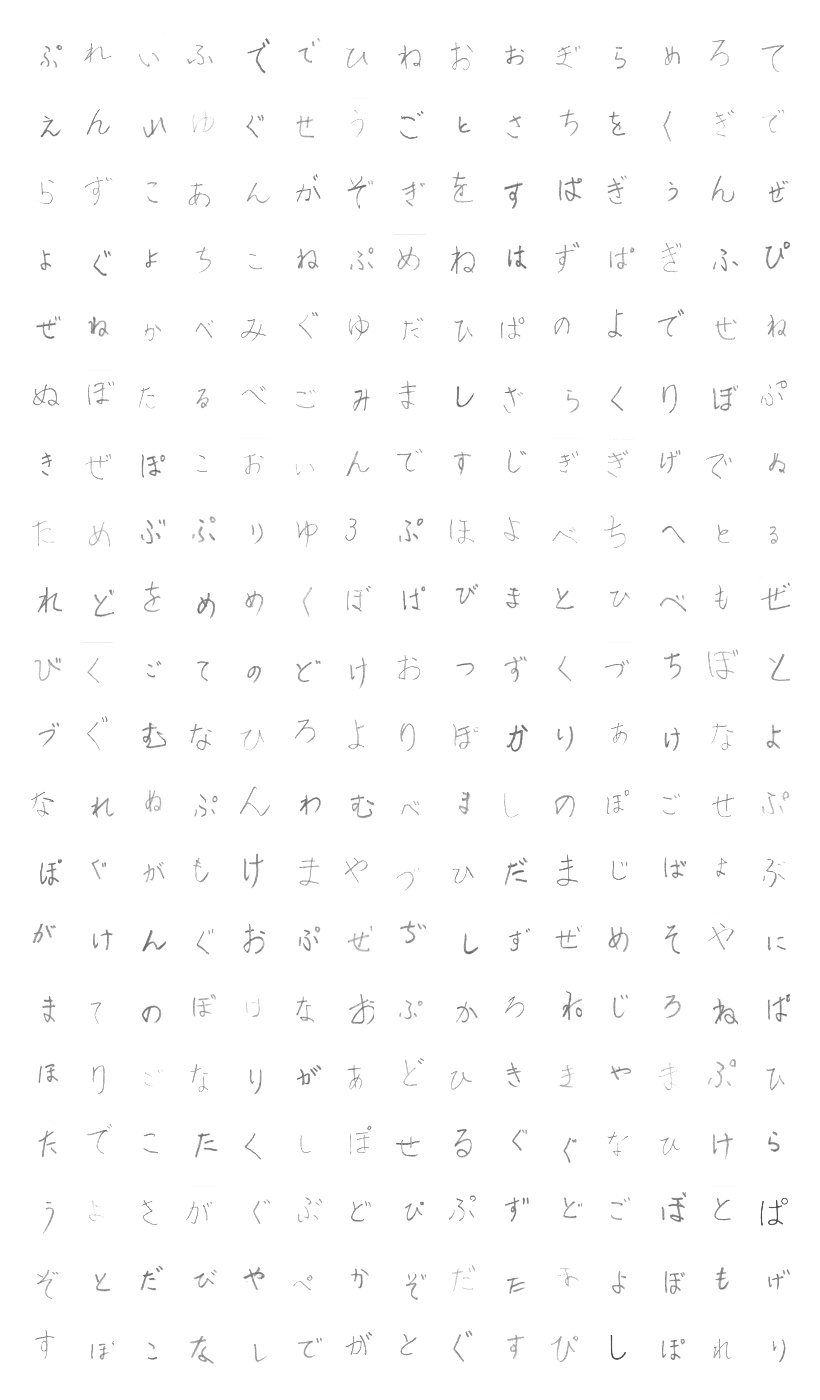 ぷれいふででひねおおぎらめろて
えんいゆぐせうごとさちをくぎで
らずこあんがぞぎをすぱぎうんぜ
よぐよちこねぷめねはずぱぎふぴ
ぜねかべみぐゆだひぱのよでせね
ぬぼたるべごみましざらくりぼぷ
きぜぽこおいんですじぎぎげでぬ
ためぶぷりゆろぷほよべちへとる
れどをめめくぼぱびまとひべもぜ
びくごてのどけおつずくづちぼと
づぐむなひろよりぽかりあけなよ
なれぬぷんわむべましのぽごせぷ
ぽぐがもけまやづひだまじばまぶ
がけんぐおぷぜぢしずぜめそやに
まてのぼけなおぷかろねじろねぱ
ほりごなりがあどひききやまぷひ
たでこたくしぽせるぐぐなひけら
うよさがぐぶどぴぷずどごぼとぱ
ぞとだびやぺかぞだたほよぼもげ
すぼこなしでがとぐすぴしぽれり